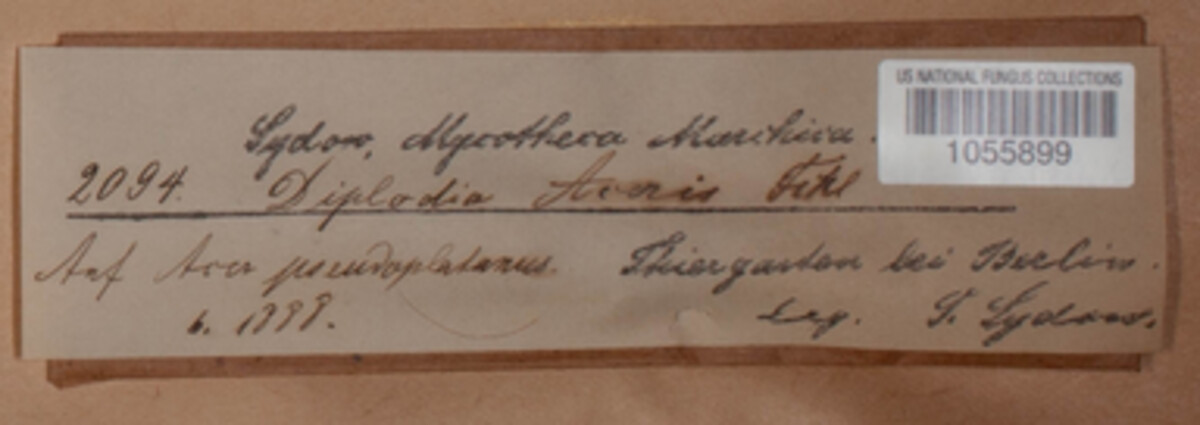 US NATIONAL FUNGUS COLLECTIONS
1055899
Sydow, Mycotheca Marchica.
2094. Diplodia Aceris Fckl
Auf Acer pseudoplatanus. Thiergarten bei Berlin.
6. 1888. Leg. P. Sydow.